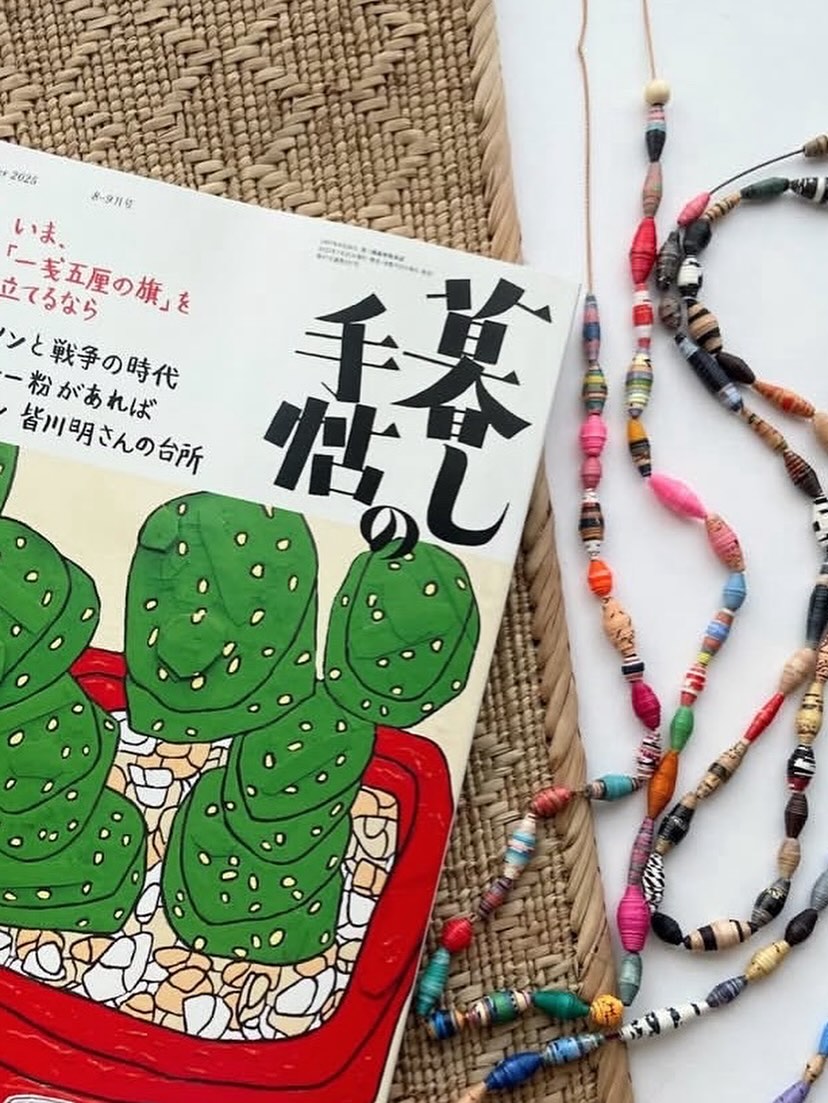 2025
8–9月号
いま、
「一戔五厘の旗」を
立てるなら
ンと戦争の時代
ー粉があれば
ン 皆川明さんの台所
暮しの
手帖